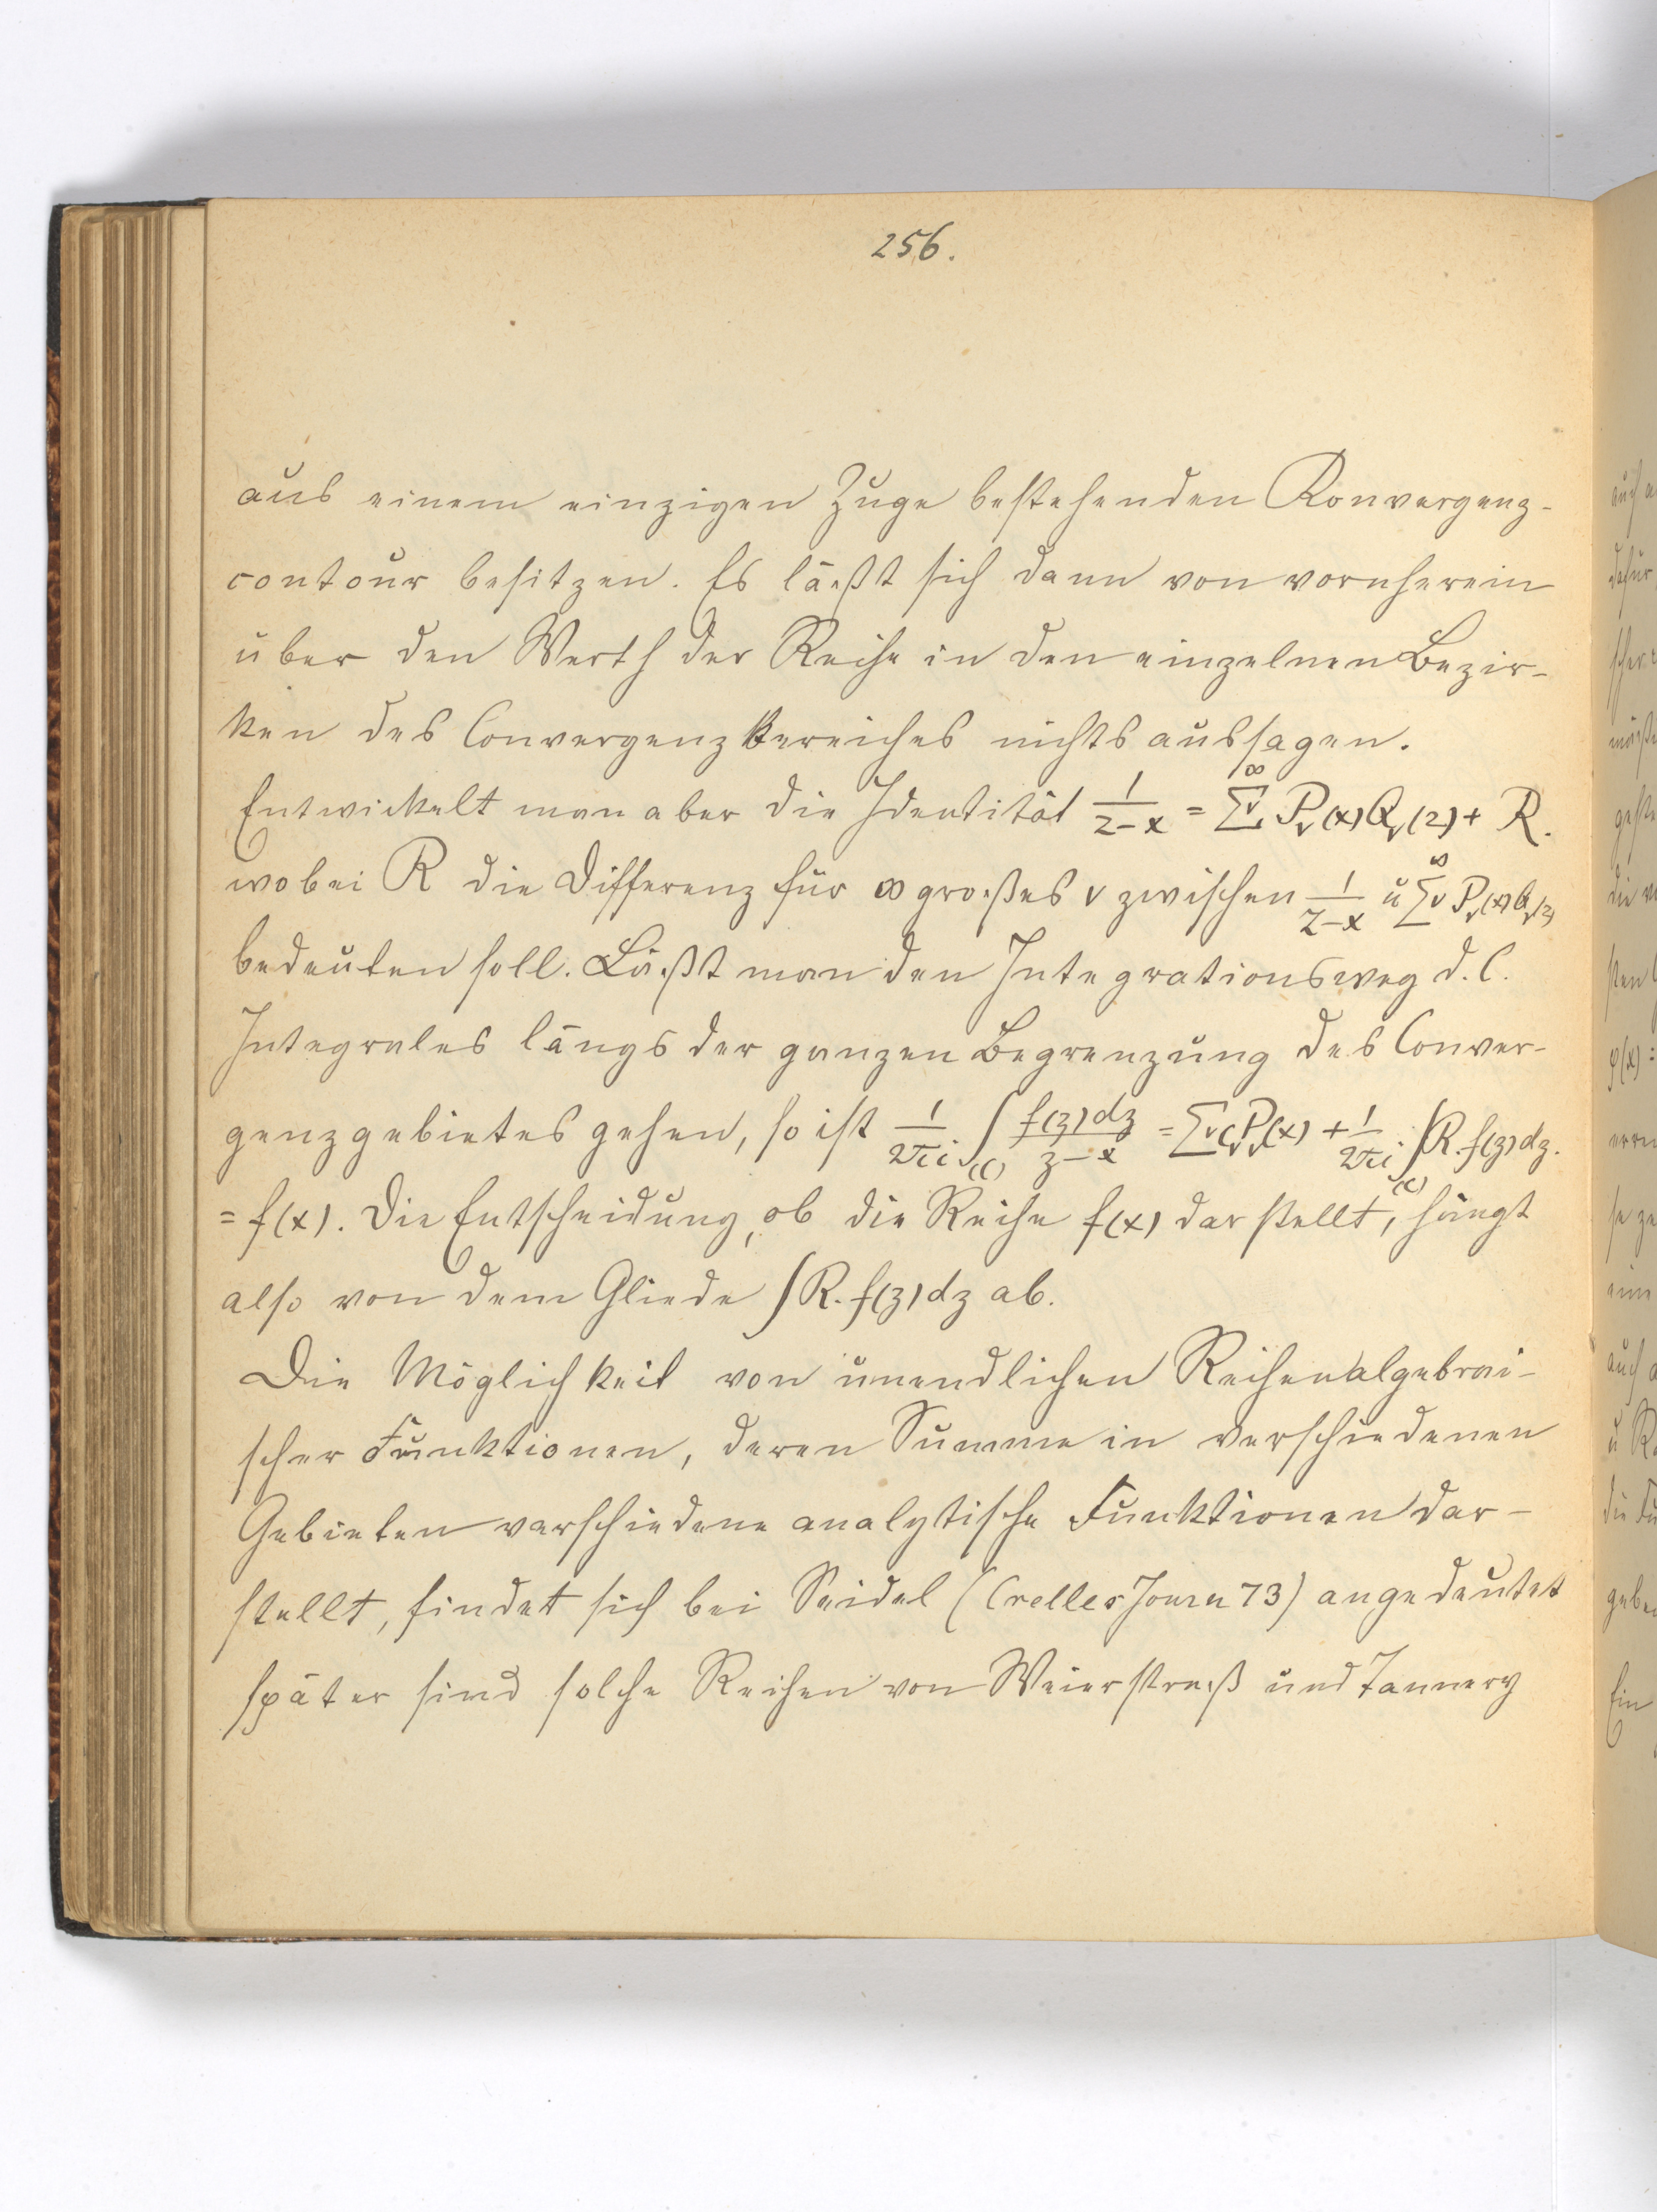 256.
aus einem einzigen Zuge bestehenden Konvergenz-
contour besitzen. Es läßt sich dann von vornherein
über den Werth der Reihe in den einzelnen Bezir-
ken des Convergenzbereiches nichts aussagen.
Entwickelt man aber die Identität 1/(z-x) = Σν^∞ Pν(x) Qν(z) + R.
wobei R die Differenz für ∞ großes ν zwischen 1/(z-x) u Σν^∞ Pν(x) Qν(z)
bedeuten soll. Läßt man den Integrationsweg d. C.
Integrales längs der ganzen Begrenzung des Conver-
genzgebietes gehen, so ist 1/2πi ∫(C) f(z)dz/(z-x) = Σν Cν Pν(x) + 1/2πi ∫(C) R. f(z)dz.
= f(x). Die Entscheidung, ob die Reihe f(x) darstellt, hängt
also von dem Gliede ∫R. f(z)dz ab.
Die Möglichkeit von unendlichen Reihen algebrai-
scher Funktionen, deren Summe in verschiedenen
Gebieten verschiedene analytische Funktionen dar-
stellt, findet sich bei Seidel (Crelles Journ 73) angedeutet
später sind solche Reihen von Weierstraß und Tannery